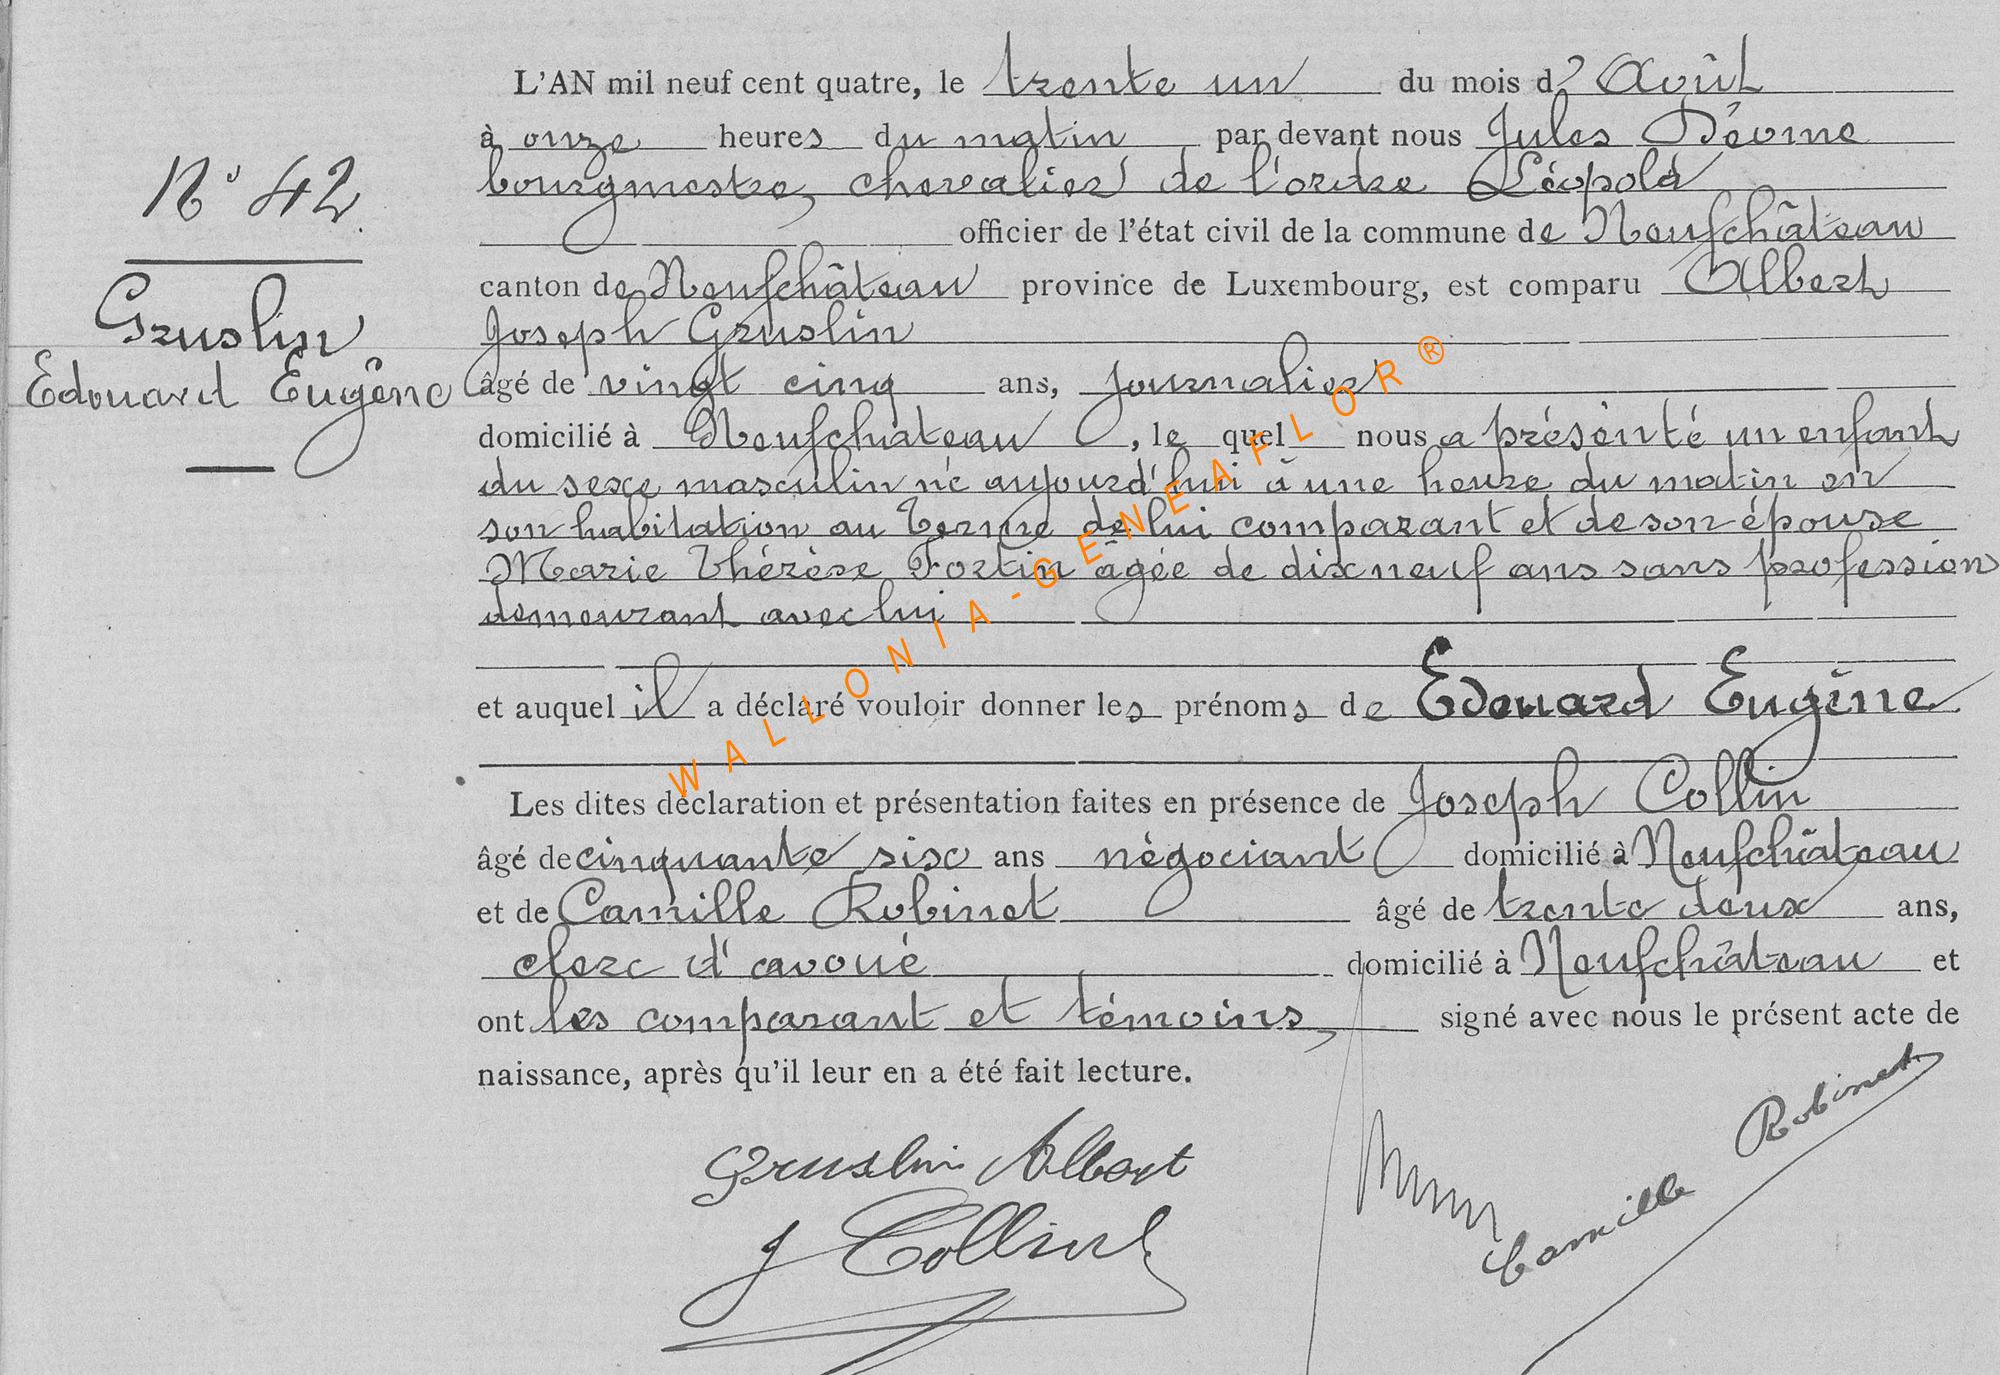 L'AN mil neuf cent quatre, le trente un du mois d'Août
à onze heures du matin par devant nous Jules
bourgmestre, chevalier de l'ordre Léopold
N° 42
officier de l'état civil de la commune de Neufchâteau
canton de Neufchâteau province de Luxembourg, est comparu Albert
Gruslin
Joseph Gruslin
Edouard Eugène
âgé de vingt cinq ans, journalier
domicilié à Neufchateau, le quel nous a présenté un enfant
du sexe masculin né aujourd'hui à une heure du matin en
son habitation au Terme de lui comparant et de son épouse
Marie Thérèse Fortin âgée de dix neuf ans sans profession
demeurant avec lui
et auquel il a déclaré vouloir donner les prénoms de Edouard Eugène
Les dites déclaration et présentation faites en présence de Joseph Collin
âgé de cinquante six ans négociant domicilié à Neufchâteau
et de Camille Robinet âgé de trente deux ans,
clerc d'avoué domicilié à Neufchâteau et
ont les comparant et témoins, signé avec nous le présent acte de
naissance, après qu'il leur en a été fait lecture.
Gruslin Albert
J Collin
Camille Robinet
WALLONIA-GENEAFLOR®